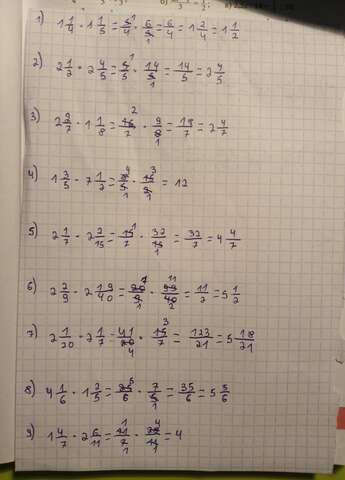 1) 1 1/4 · 1 1/5 = 5/4 · 6/5 = 6/4 = 1 2/4 = 1 1/2
2) 2 1/2 · 2 4/5 = 5/5 · 14/5 = 14/5 = 2 4/5
3) 2 2/7 · 1 1/8 = 16/7 · 9/8 = 18/7 = 2 4/7
4) 1 3/5 · 7 1/2 = 8/5 · 15/2 = 12
5) 2 1/7 · 2 2/15 = 15/7 · 32/15 = 32/7 = 4 4/7
6) 2 2/9 · 2 19/40 = 20/9 · 99/40 = 11/2 = 5 1/2
7) 2 1/20 · 2 1/7 = 41/20 · 15/7 = 123/21 = 5 18/21
8) 4 1/6 · 1 2/5 = 25/6 · 7/5 = 35/6 = 5 5/6
9) 1 4/7 · 2 6/11 = 11/7 · 28/11 = 4